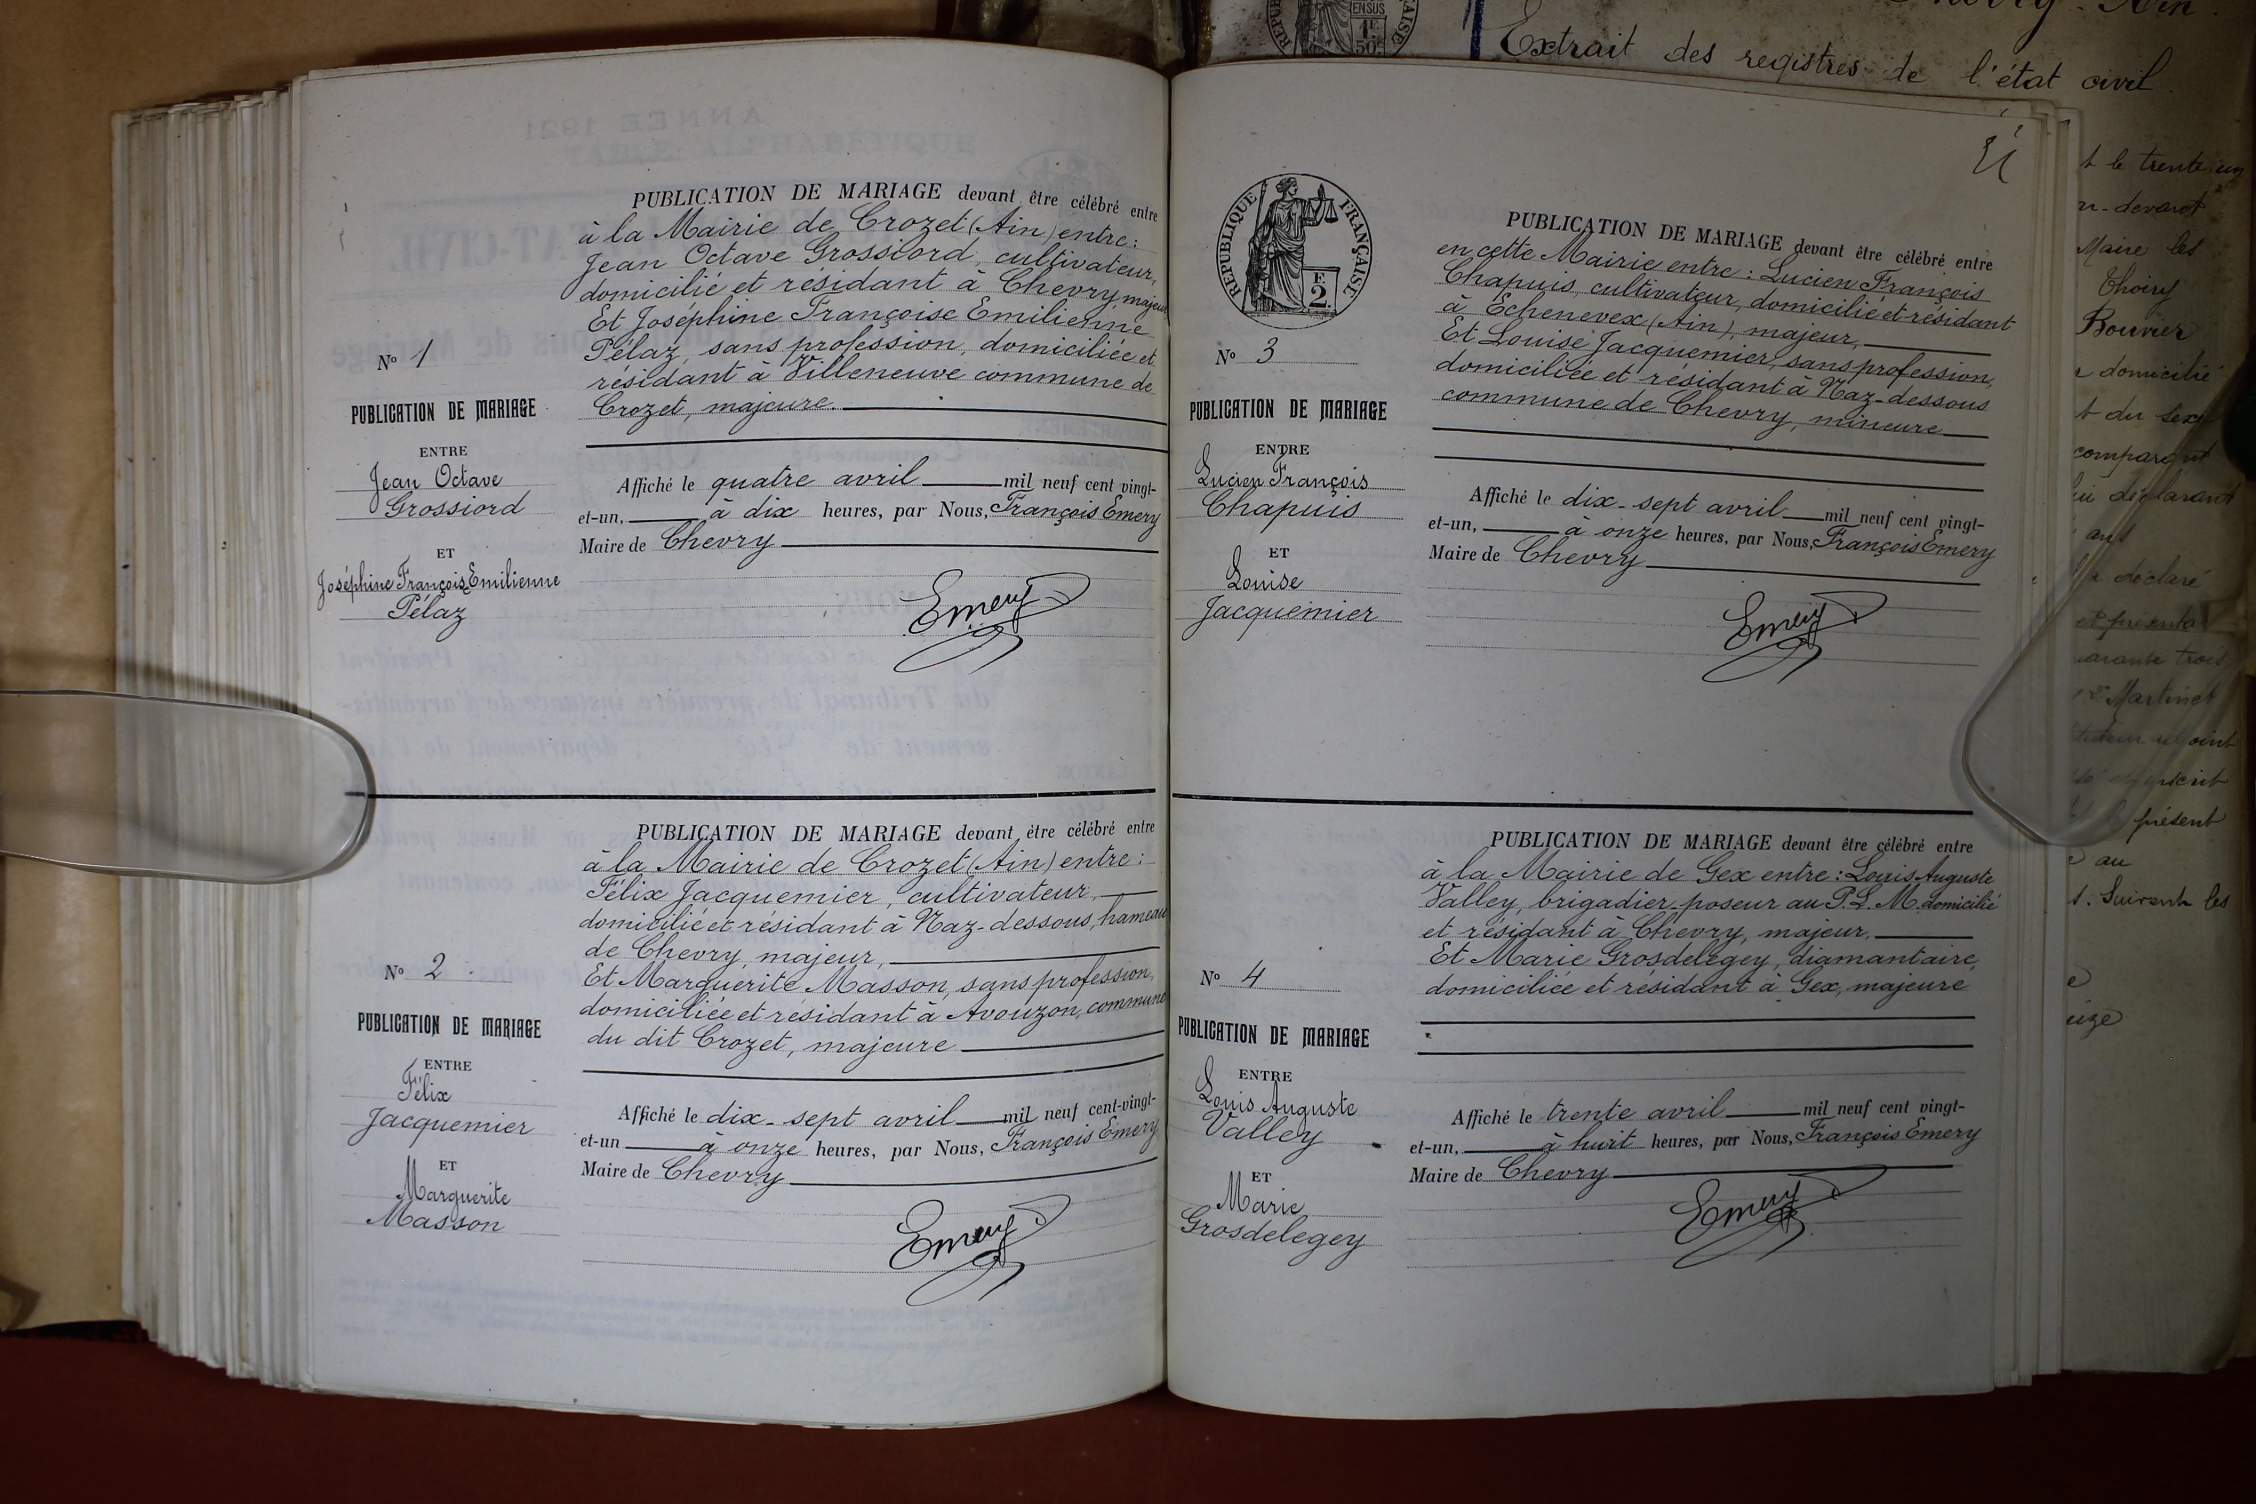 PUBLICATION DE MARIAGE devant être célébré entre
à la Mairie de Crozet (Ain) entre :
Jean Octave Grossiord, cultivateur,
domicilié et résidant à Chevry, majeur
Et Joséphine Françoise Emilienne
Pélaz, sans profession, domiciliée et
résidant à Villeneuve commune de
Crozet, majeure.
N° 1
PUBLICATION DE MARIAGE
ENTRE
Jean Octave
Grossiord
ET
Joséphine Françoise Emilienne
Pélaz
Affiché le quatre avril mil neuf cent vingt-
et-un, à dix heures, par Nous, François Emery
Maire de Chevry
Emery
PUBLICATION DE MARIAGE devant être célébré entre
à la Mairie de Crozet (Ain) entre :
Félix Jacquemier, cultivateur,
domicilié et résidant à Naz-dessous, hameau
de Chevry, majeur,
Et Marguerite Masson, sans profession,
domiciliée et résidant à Avouzon, commune
du dit Crozet, majeure
N° 2
PUBLICATION DE MARIAGE
ENTRE
Félix
Jacquemier
ET
Marguerite
Masson
Affiché le dix-sept avril mil neuf cent-vingt-
et-un à onze heures, par Nous, François Emery
Maire de Chevry
Emery
RÉPUBLIQUE FRANÇAISE
F.
2.
PUBLICATION DE MARIAGE devant être célébré entre
en cette Mairie entre : Lucien François
Chapuis, cultivateur, domicilié et résidant
à Echenevex (Ain), majeur,
Et Louise Jacquemier, sans profession,
domiciliée et résidant à Naz-dessous
commune de Chevry, mineure
N° 3
PUBLICATION DE MARIAGE
ENTRE
Lucien François
Chapuis
ET
Louise
Jacquemier
Affiché le dix-sept avril mil neuf cent vingt-
et-un, à onze heures, par Nous, François Emery
Maire de Chevry
Emery
PUBLICATION DE MARIAGE devant être célébré entre
à la Mairie de Gex entre : Louis Auguste
Valley, brigadier-poseur au P.L.M. domicilié
et résidant à Chevry, majeur,
Et Marie Grosdelegey, diamantaire,
domiciliée et résidant à Gex, majeure
N° 4
PUBLICATION DE MARIAGE
ENTRE
Louis Auguste
Valley
ET
Marie
Grosdelegey
Affiché le trente avril mil neuf cent vingt-
et-un, à huit heures, par Nous, François Emery
Maire de Chevry
Emery
Extrait des registres de l'état civil
le trente un
devant
Maire les
Thoiry
Bouvier
domicilié
du sexe
comparant
déclarant
ans
a déclaré
et présenta
quarante trois
Martinet
présent
au
Suivent les